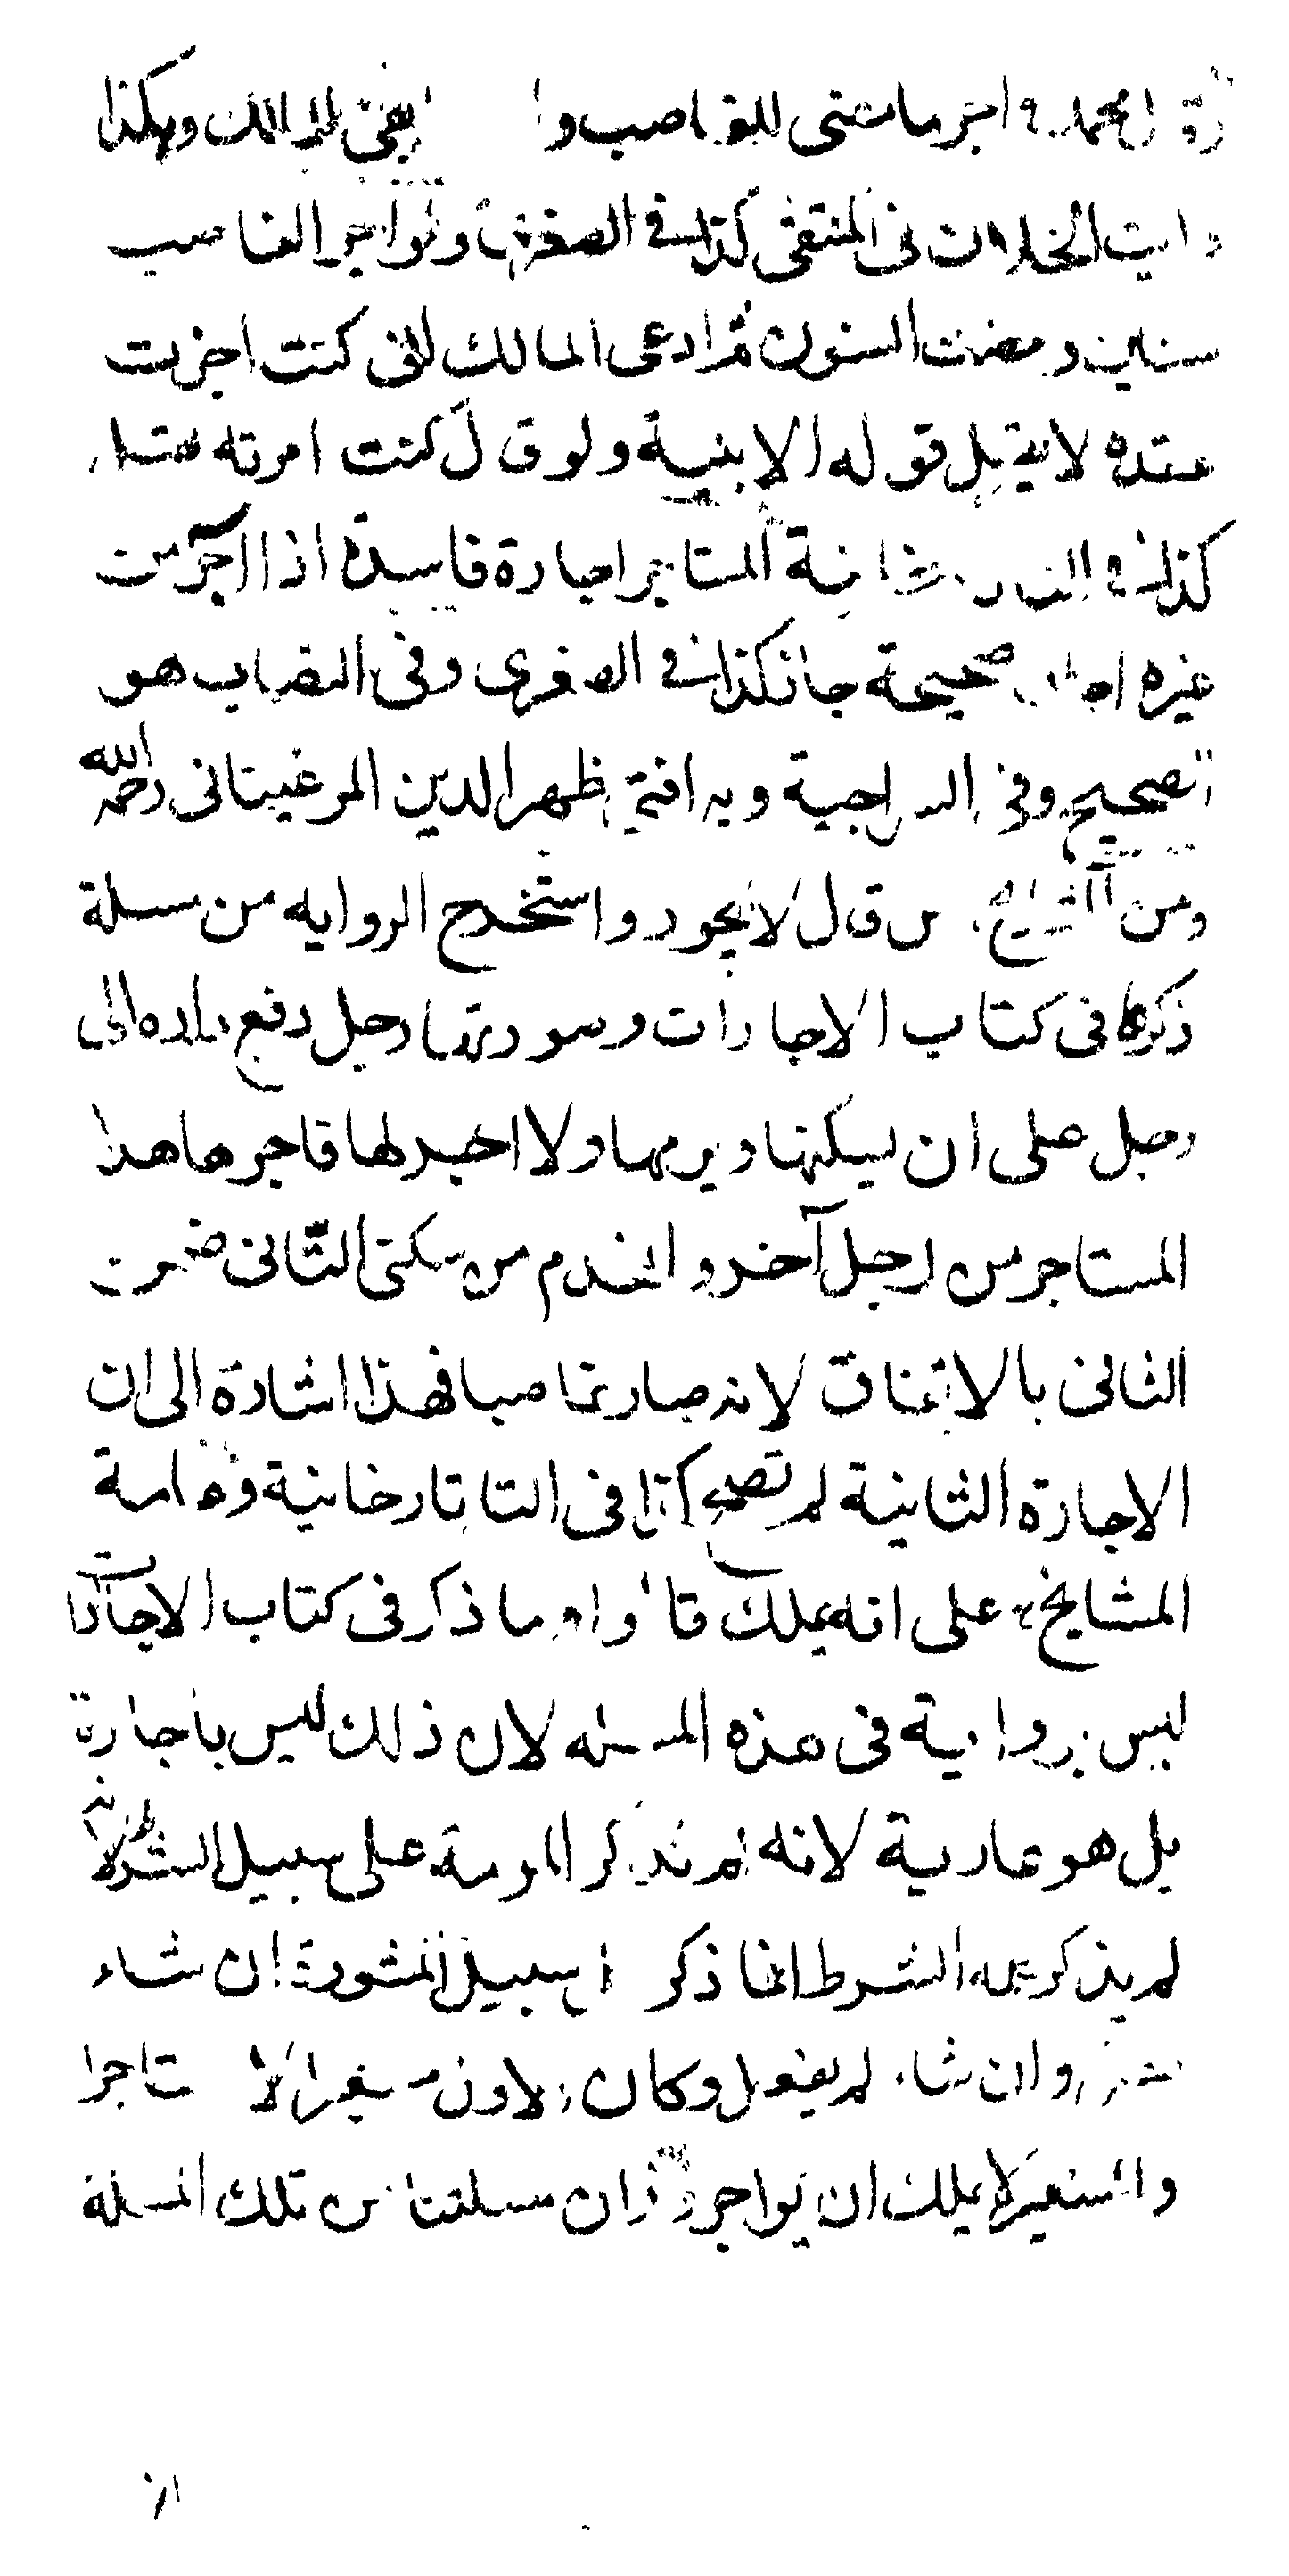 محمد اجر ما مضى للغاصب وا بقى للمالك وهكذا
رايت الخلاف فى المنتقى كذا فى الصغرى ولو اجر الغاصب
سنين ومضت السنون ثم ادعى المالك انى كنت اجزت
عقده لا يقبل قوله الا ببينة ولو قال كنت امرته
كذا فى المستاجر اجارة فاسدة اذا اجر من
غيره صحيحة جاز كذا فى الصغرى وفى النصاب هو
الصحيح وفى السراجية وبه افتى ظهر الدين المرغينانى رحمه الله
ومن المشايخ من قال لا يجوز واستخرج الروايه من مسلة
ذكرها فى كتاب الاجارات وصورتها رجل دفع داره الى
رجل على ان يسكنها ويرمها ولا اجر لها فاجرها هذا
المستاجر من رجل آخر وانهدم من سكنى الثانى ضمن
الثانى بالاتفاق لانه صار غاصبا فهذا اشارة الى ان
الاجارة الثانية لم تصح كذا فى التاتارخانية وعامة
المشايخ على انه يملك قالوا وما ذكر فى كتاب الاجارات
ليس برواية فى هذه المسئله لان ذلك ليس باجارة
بل هو عارية لانه لم يذكر المرمة على سبيل الشرط لانه
لم يذكر كلمه الشرط انما ذكر سبيل المشورة ان شاء
وان شاء لم يفعل وكان الاول مستعيرا لا مستاجرا
والمستعير لا يملك ان يواجر وزان مسلتنا من تلك المسلة